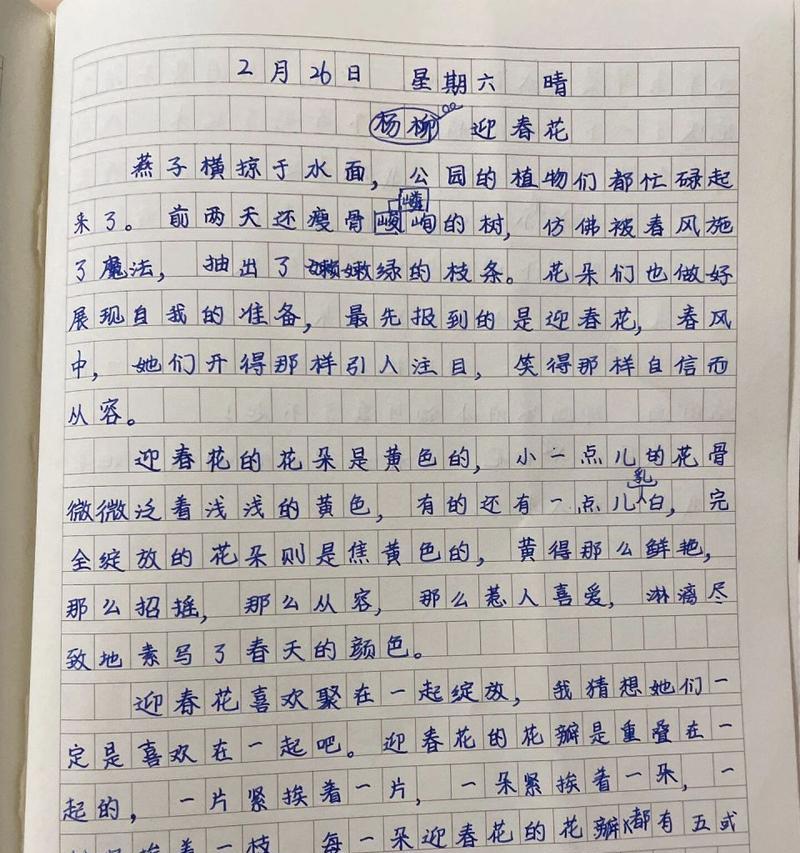 2月26日 星期六 晴
杨柳 迎春花
燕子横掠于水面，公园的植物们都忙碌起
来了。前两天还瘦骨嶙峋的树，仿佛被春风施
了魔法，抽出了嫩绿的枝条。花朵们也做好
展现自我的准备，最先报到的是迎春花，春风
中，她们开得那样引入注目，笑得那样自信而
从容。
迎春花的花朵是黄色的，小一点儿的花骨
微微泛着浅浅的黄色，有的还有一点儿乳白，完
全绽放的花朵则是焦黄色的，黄得那么鲜艳，
那么招摇，那么从容，那么惹人喜爱，淋漓尽
致地素写了春天的颜色。
迎春花喜欢聚在一起绽放，我猜想她们一
定是喜欢在一起吧。迎春花的花瓣是重叠在一
起的，一片紧挨着一片，一朵紧挨着一朵，一
挨着一枝。每一朵迎春花的花瓣都有五或